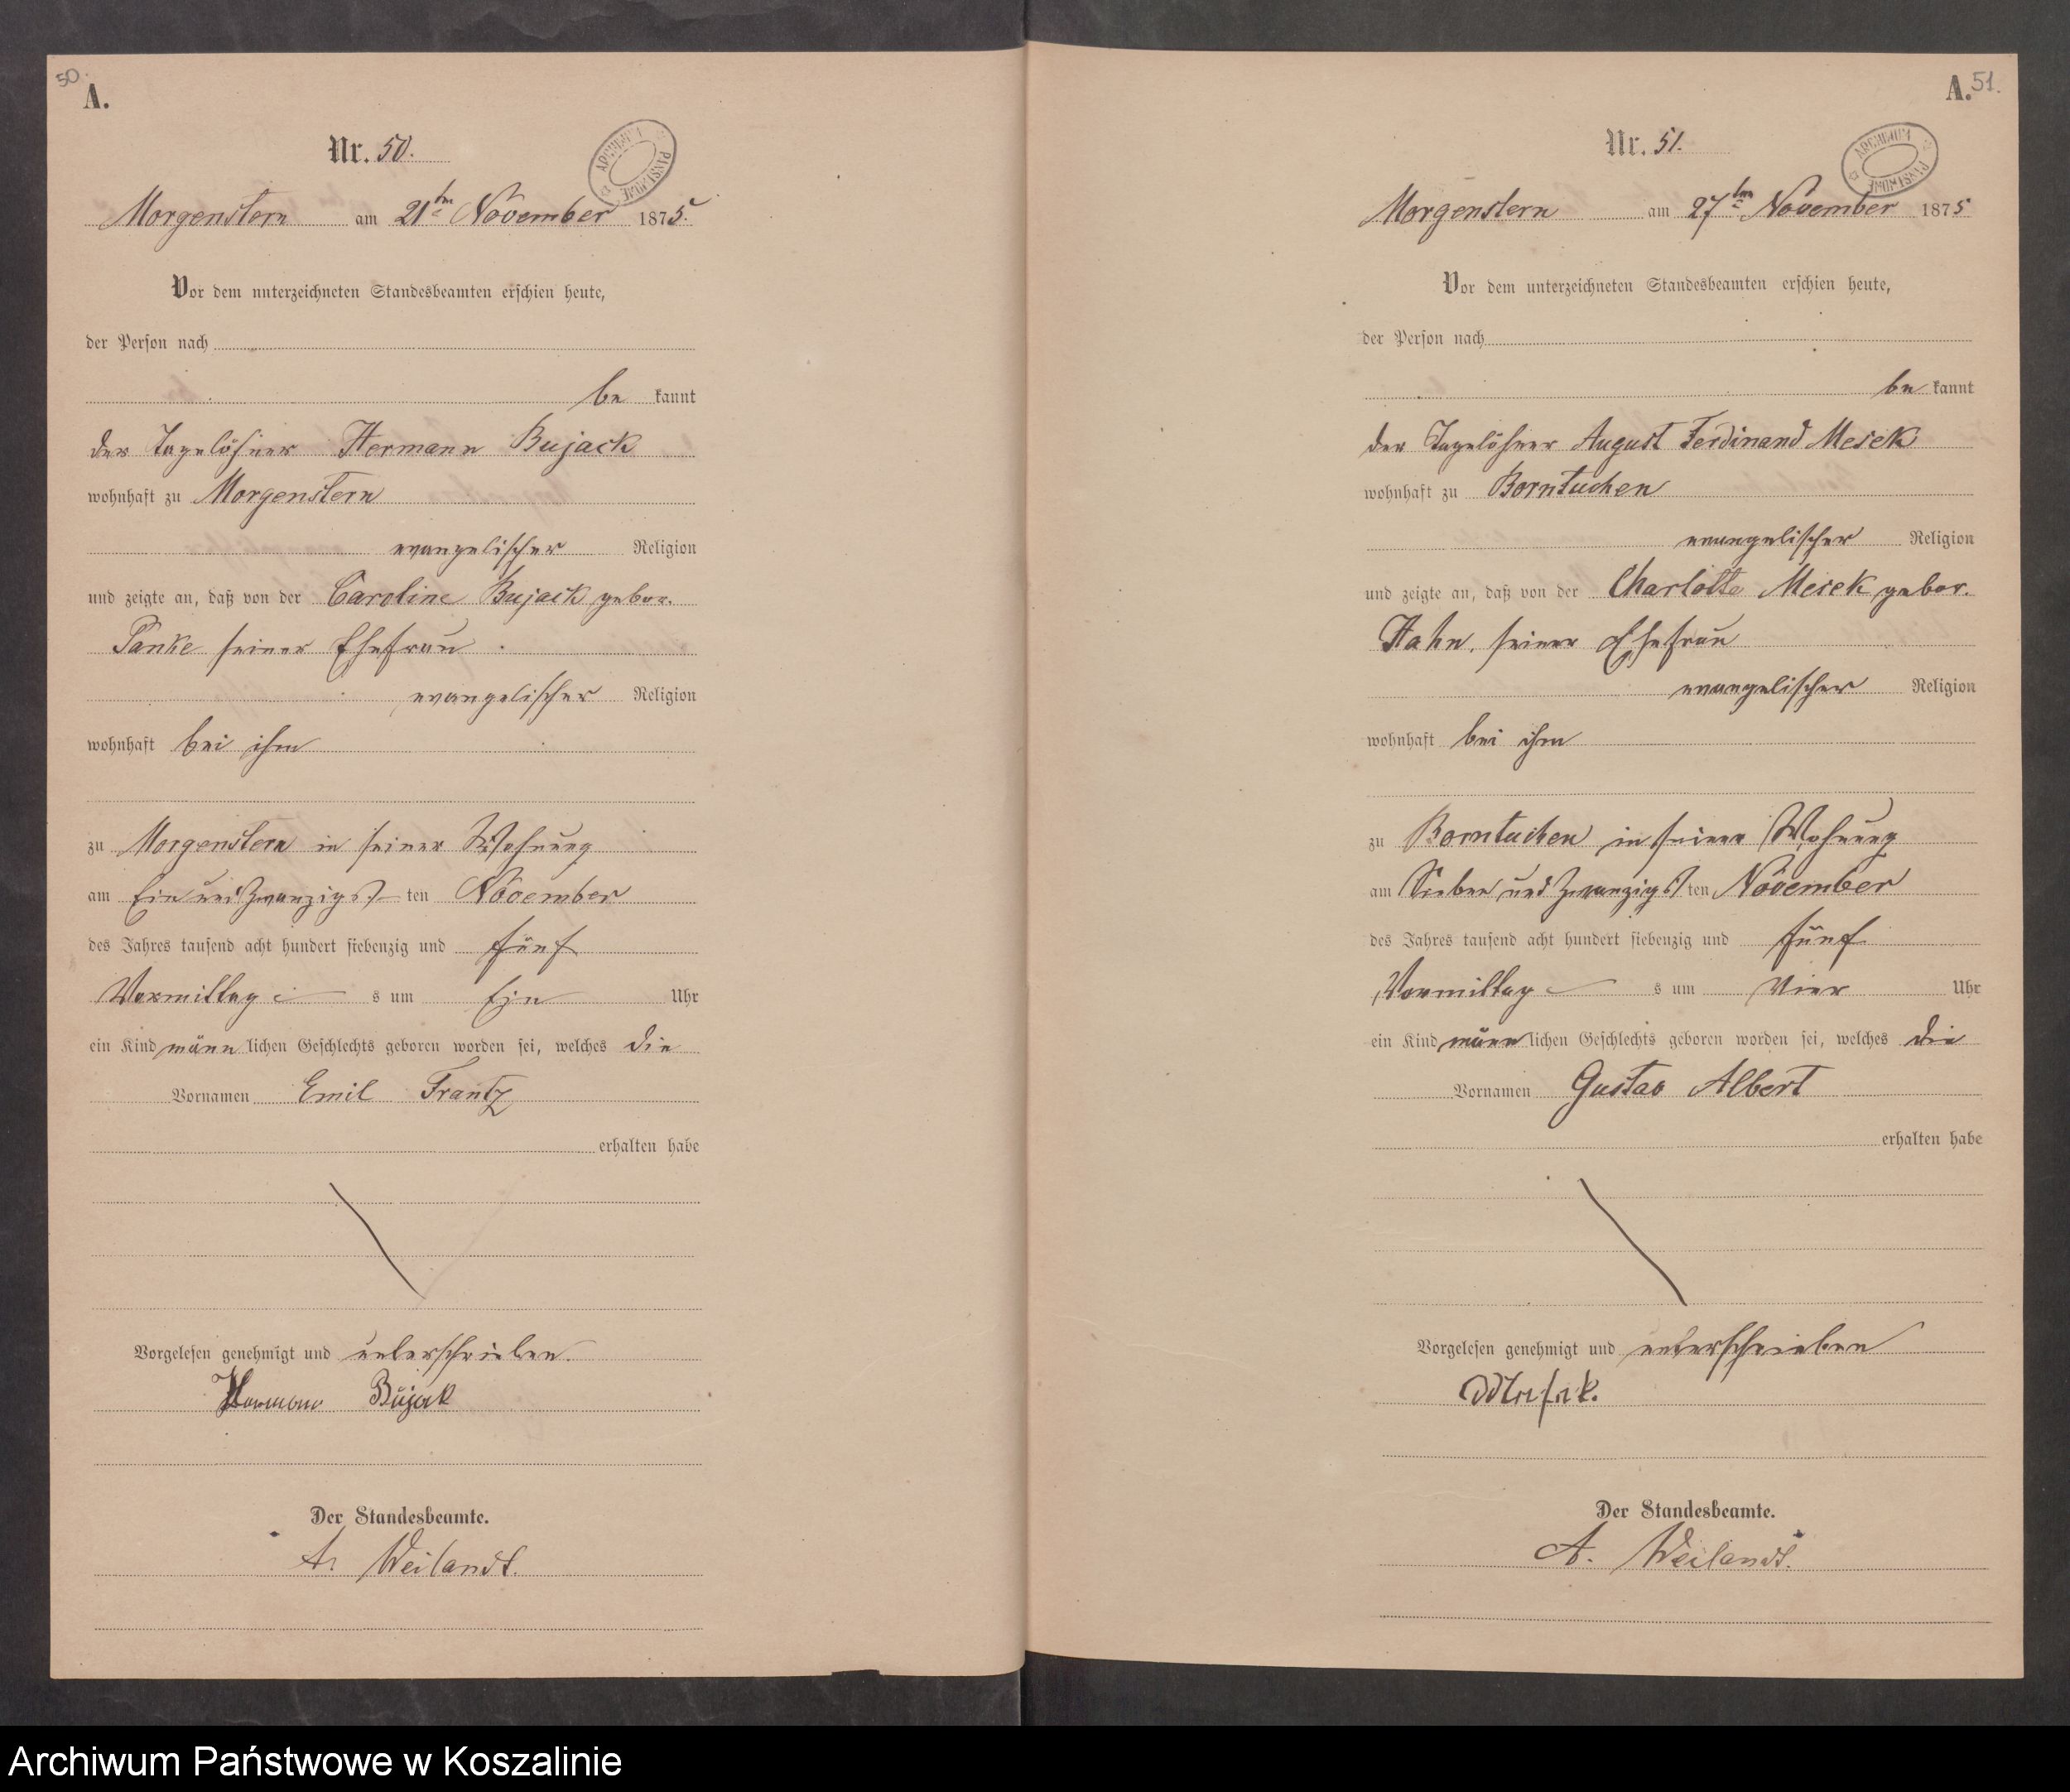 50.
A.
Nr. 50.
ARCHIWUM PAŃSTWOWE
Morgenstern am 21ten November 1875.
Vor dem unterzeichneten Standesbeamten erschien heute,
der Person nach
be kannt
der Tagelöhner Hermann Bujack
wohnhaft zu Morgenstern
evangelischer Religion
und zeigte an, daß von der Caroline Bujack gebor.
Panke seiner Ehefrau
evangelischer Religion
wohnhaft bei ihm
zu Morgenstern in seiner Wohnung
am Ein und Zwanzigsten November
des Jahres tausend acht hundert siebenzig und fünf
Vormittags um Ein Uhr
ein Kind männlichen Geschlechts geboren worden sei, welches die
Vornamen Emil Frantz
erhalten habe
Vorgelesen genehmigt und unterschrieben.
Hermann Bujak
Der Standesbeamte.
A. Weilandt.
A. 51.
Nr. 51.
ARCHIWUM PAŃSTWOWE
Morgenstern am 27ten November 1875
Vor dem unterzeichneten Standesbeamten erschien heute,
der Person nach
be kannt
der Tagelöhner August Ferdinand Mesek
wohnhaft zu Borntuchen
evangelischer Religion
und zeigte an, daß von der Charlotte Mesek gebor.
Hahn, seiner Ehefrau
evangelischer Religion
wohnhaft bei ihm
zu Borntuchen in seiner Wohnung
am Sieben und Zwanzigsten November
des Jahres tausend acht hundert siebenzig und fünf
Vormittags um Vier Uhr
ein Kind männlichen Geschlechts geboren worden sei, welches die
Vornamen Gustav Albert
erhalten habe
Vorgelesen genehmigt und unterschrieben
Mesek.
Der Standesbeamte.
A. Weilandt.
Archiwum Państwowe w Koszalinie